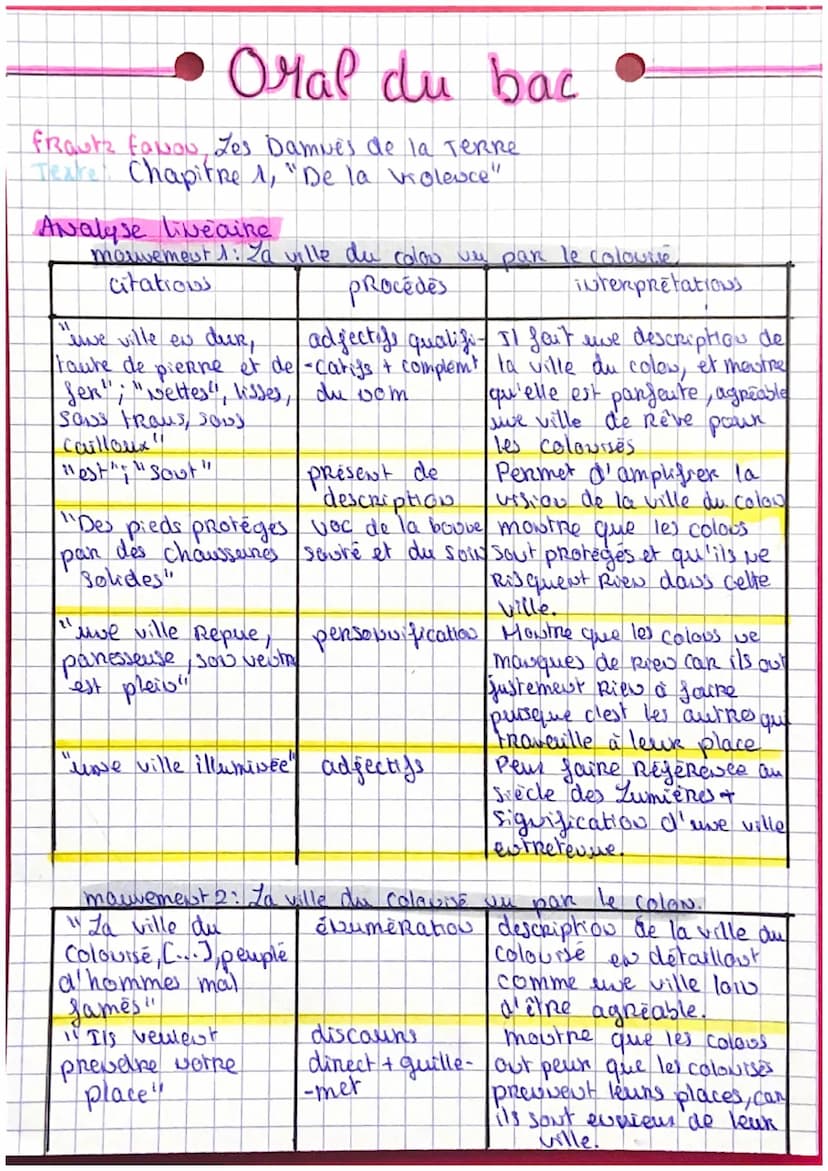 Oral du bac
Frantz Fanon, Les Damnés de la Terre
Texte: Chapitre 1, "De la violence"
Analyse linéaire
mouvement 1: La ville du colon vu par le colonisé
citations
procédés
interprétations
"une ville en dur,
toute de pierre et de
fer"; "nettes", lisses,
sans trous, sans
cailloux"
adjectifs qualifi-
-catifs + complémt
du nom
Il fait une description de
la ville du colon, et montre
qu'elle est parfaite, agréable
une ville de rêve pour
les colonisés
"est"; "sont"
présent de
description
Permet d'amplifier la
vision de la ville du colon
"Des pieds protégés
par des chaussures
solides"
voc de la bonne
santé et du soin
montre que les colons
sont protégés et qu'ils ne
risquent rien dans cette
ville.
"une ville repue,
paresseuse, son ventre
est plein"
personnification
Montre que les colons ne
manques de rien car ils ont
justement rien à faire
puisque c'est les autres qui
travaille à leur place
"une ville illuminée"
adjectifs
Peut faire référence au
siècle des Lumières +
signification d'une ville
entretenue.
mouvement 2: La ville du colonisé vu par le colon.
"La ville du
colonisé, [...], peuplé
d'hommes mal
famés"
énumération
description de la ville du
colonisé en détaillant
comme une ville loin
d'être agréable.
"Ils veulent
prendre notre
place"
discours
direct + guille-
-met
montre que les colons
ont peur que les colonisés
prennent leurs places, car
ils sont envieux de leur
ville.